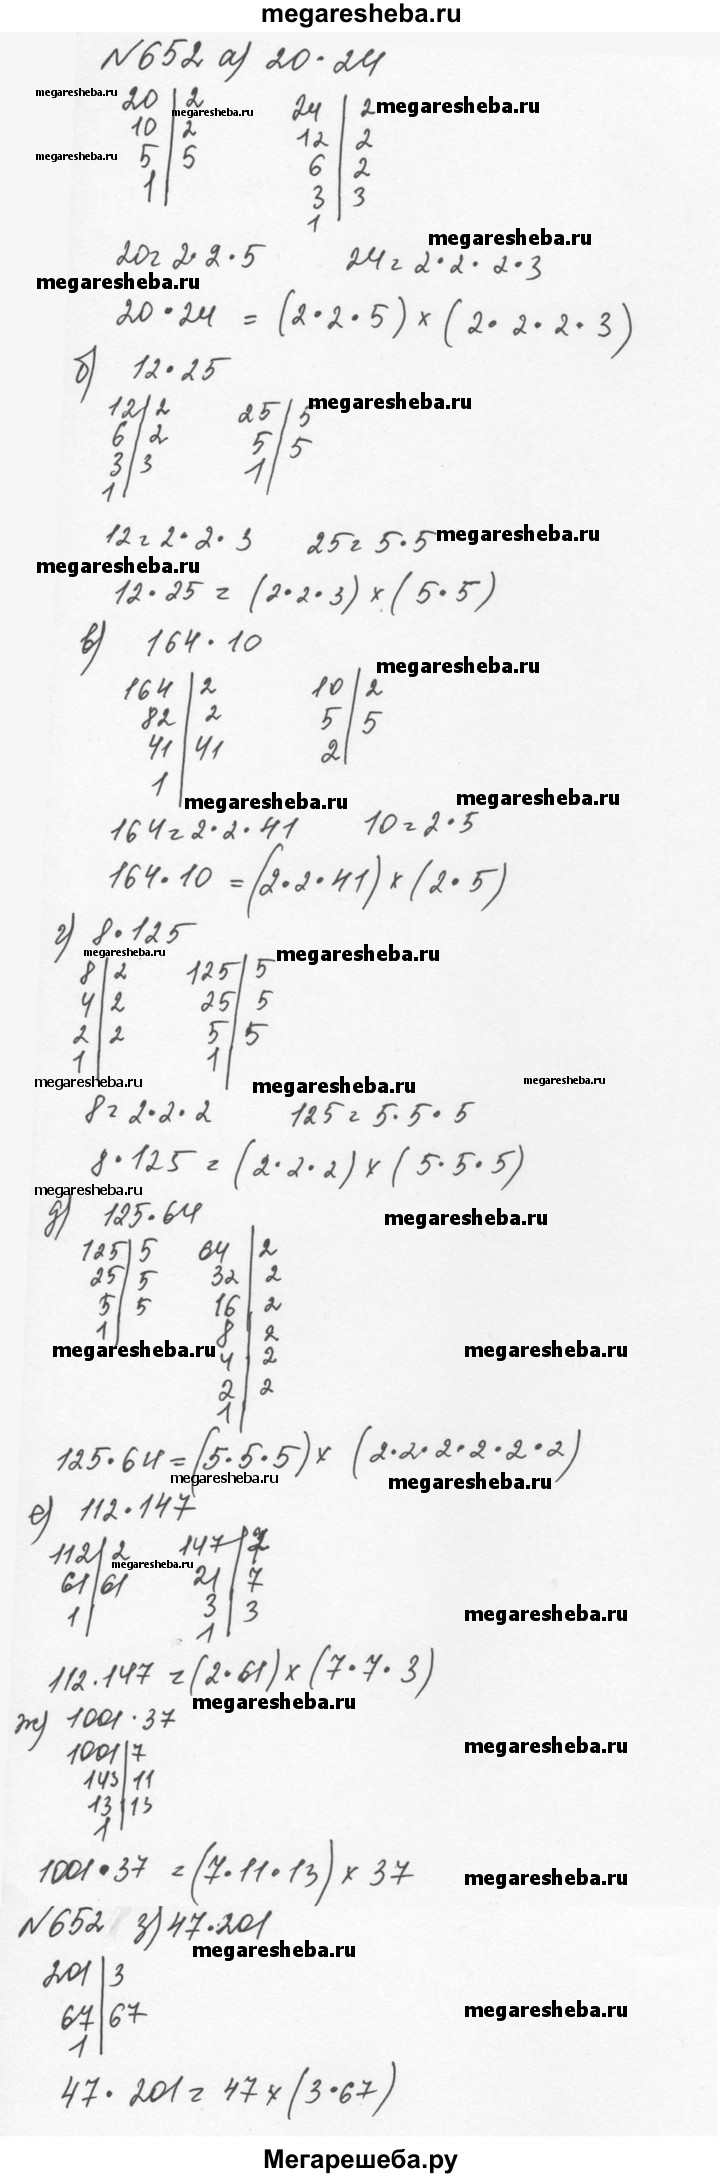 megaresheba.ru
№652 а) 20·24
megaresheba.ru 20 | 2 megaresheba.ru 24 | 2 megaresheba.ru
10 | 2 12 | 2
megaresheba.ru 5 | 5 6 | 2
1 | 3 | 3
1
megaresheba.ru
20 = 2·2·5 24 = 2·2·2·3
megaresheba.ru
20·24 = (2·2·5) × (2·2·2·3)
б) 12·25
12 | 2 25 | 5 megaresheba.ru
6 | 2 5 | 5
3 | 3 1 |
1
12 = 2·2·3 25 = 5·5 megaresheba.ru
megaresheba.ru
12·25 = (2·2·3) × (5·5)
в) 164·10
megaresheba.ru
164 | 2 10 | 2
82 | 2 5 | 5
41 | 41 2 |
1 |
megaresheba.ru megaresheba.ru
164 = 2·2·41 10 = 2·5
164·10 = (2·2·41) × (2·5)
г) 8·125
megaresheba.ru megaresheba.ru
8 | 2 125 | 5
4 | 2 25 | 5
2 | 2 5 | 5
1 | 1 |
megaresheba.ru megaresheba.ru megaresheba.ru
8 = 2·2·2 125 = 5·5·5
8·125 = (2·2·2) × (5·5·5)
megaresheba.ru
д) 125·64 megaresheba.ru
125 | 5 64 | 2
25 | 5 32 | 2
5 | 5 16 | 2
1 | 8 | 2
megaresheba.ru 4 | 2 megaresheba.ru
2 | 2
1 |
125·64 = (5·5·5) × (2·2·2·2·2·2)
megaresheba.ru megaresheba.ru
е) 112·147
112 | 2 megaresheba.ru 147 | 7
61 | 61 21 | 7
1 | 3 | 3 megaresheba.ru
1 |
112·147 = (2·61) × (7·7·3)
megaresheba.ru
ж) 1001·37
1001 | 7 megaresheba.ru
143 | 11
13 | 13
1 |
1001·37 = (7·11·13) × 37 megaresheba.ru
№652 з) 47·201
megaresheba.ru
201 | 3
67 | 67 megaresheba.ru
1 |
47·201 = 47 × (3·67)
Мегарешеба.ру